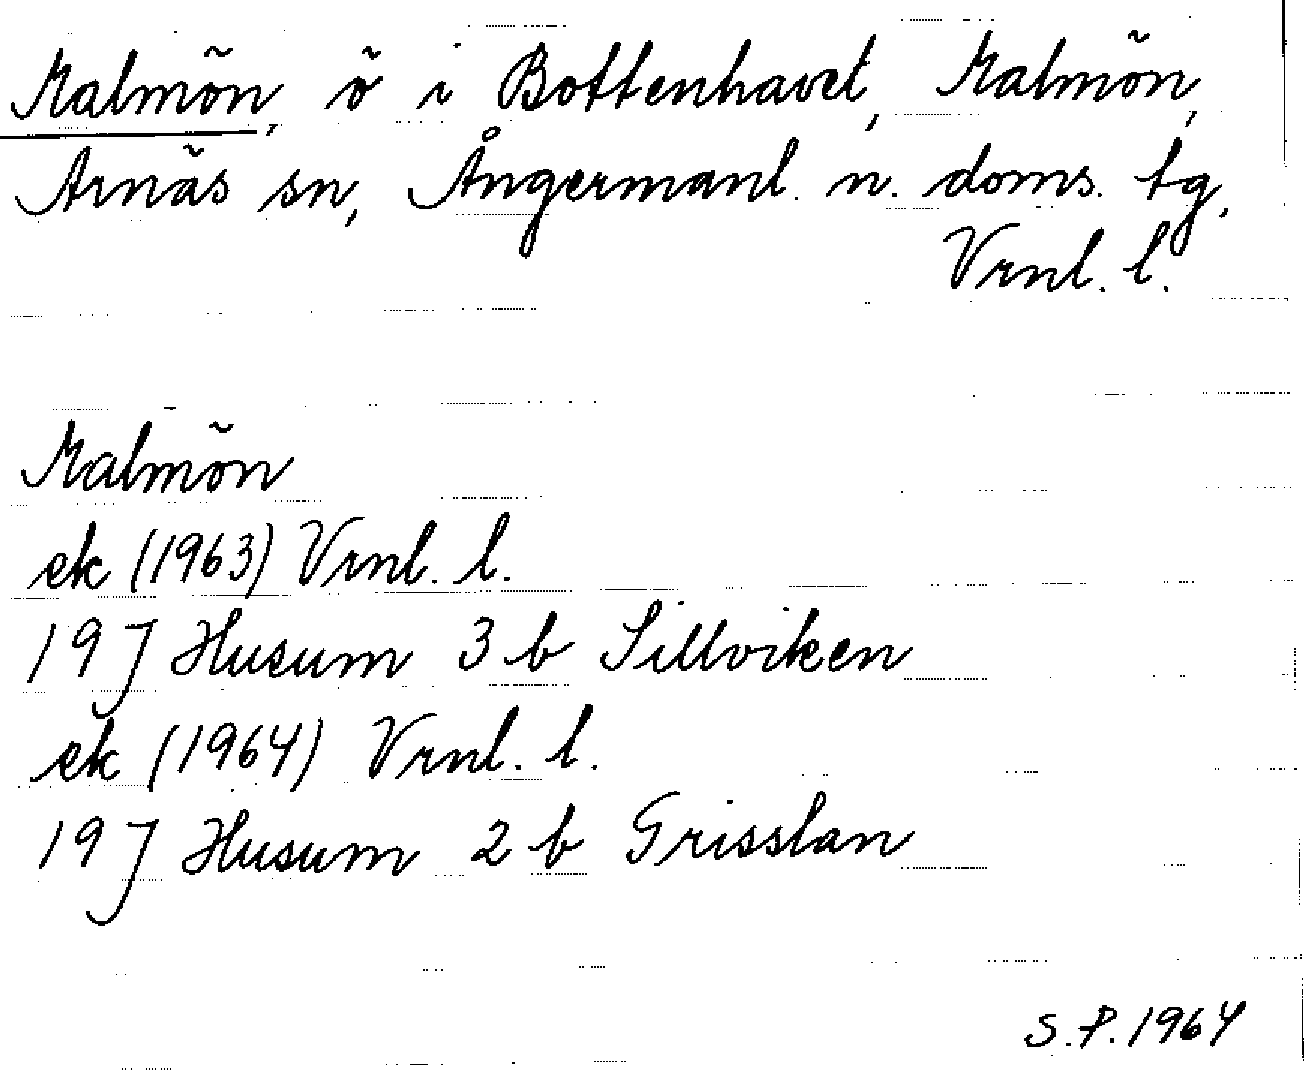 Malmön, ö i Bottenhavet, Malmön,
Arnäs sn, Ångermanl. n. doms. tg,
Vrnl. l.
Malmön
ek (1963) Vrnl. l.
19 J Husum 3 b Sillviken
ek (1964) Vrnl. l.
19 J Husum 2 b Grisslan
S.P. 1964